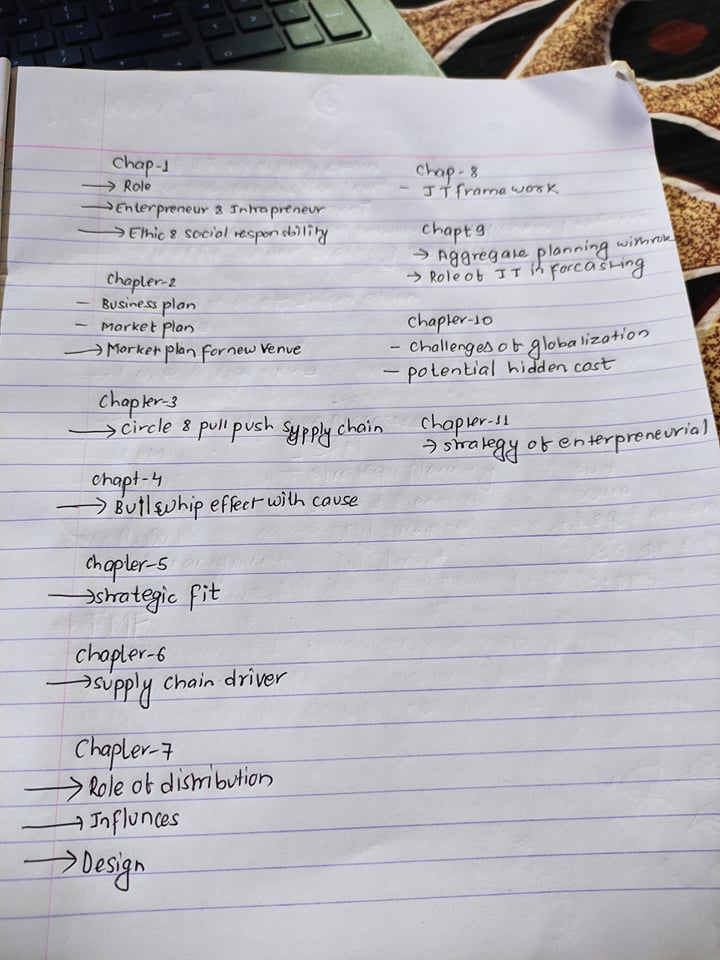 Chap-1
→ Role
→ Enterpreneur & Intrapreneur
→ Ethic & social responsbility
Chapter-2
- Business plan
- Market plan
→ Market plan for new venue
Chapter-3
→ circle & pull push supply chain
chapt-4
→ Bullwhip effect with cause
chapter-5
→ strategic fit
Chapter-6
→ supply chain driver
Chapter-7
→ Role of distribution
→ Influnces
→ Design
Chap-8
- IT frame work
Chapt 9
→ Aggregate planning with role
→ Role of IT in forcasting
Chapter-10
- challenges of globalization
- potential hidden cost
Chapter-11
→ strategy of enterpreneurial